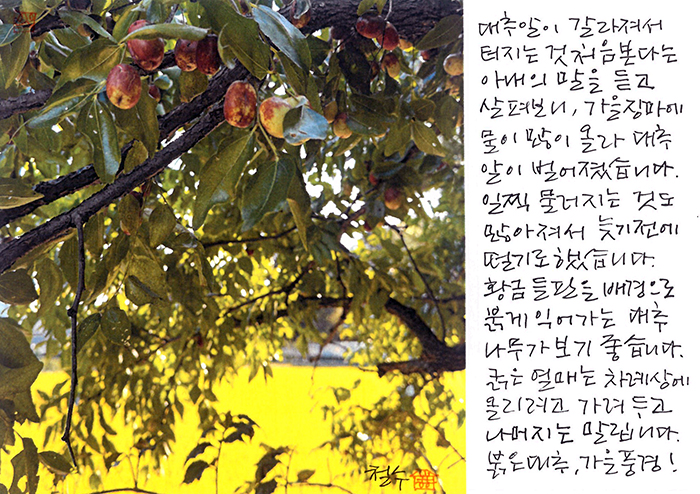 대추알이 갈라져서
터지는 것 처음본다는
아내의 말을 듣고
살펴보니, 가을장마에
물이 많이 올라 대추
알이 벌어졌습니다.
일찍 물러지는 것도
많아져서 늦기전에
떨기로했습니다.
황금들판을 배경으로
붉게 익어가는 대추
나무가 보기 좋습니다.
굵은 열매는 차례상에
올리려고 가려 두고
나머지는 말립니다.
붉은대추, 가을풍경!
철수